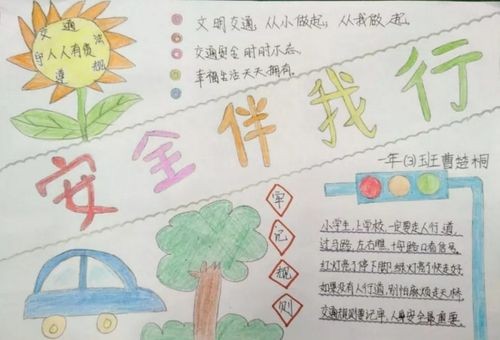 交通 法
人人有责
遵 规
文明交通,从小做起,从我做起.
交通安全时时不忘,
幸福生活天天拥有.
安全伴我行
一年(3)班曹楚桐
牢
记
规
则
小学生,上学校,一定要走人行道,
过马路,左右瞧,十字路口看信号。
红灯亮了停下脚,绿灯亮了快走好
如果没有人行道,别怕麻烦走天桥,
交通规则要记牢,人身安全最重要。